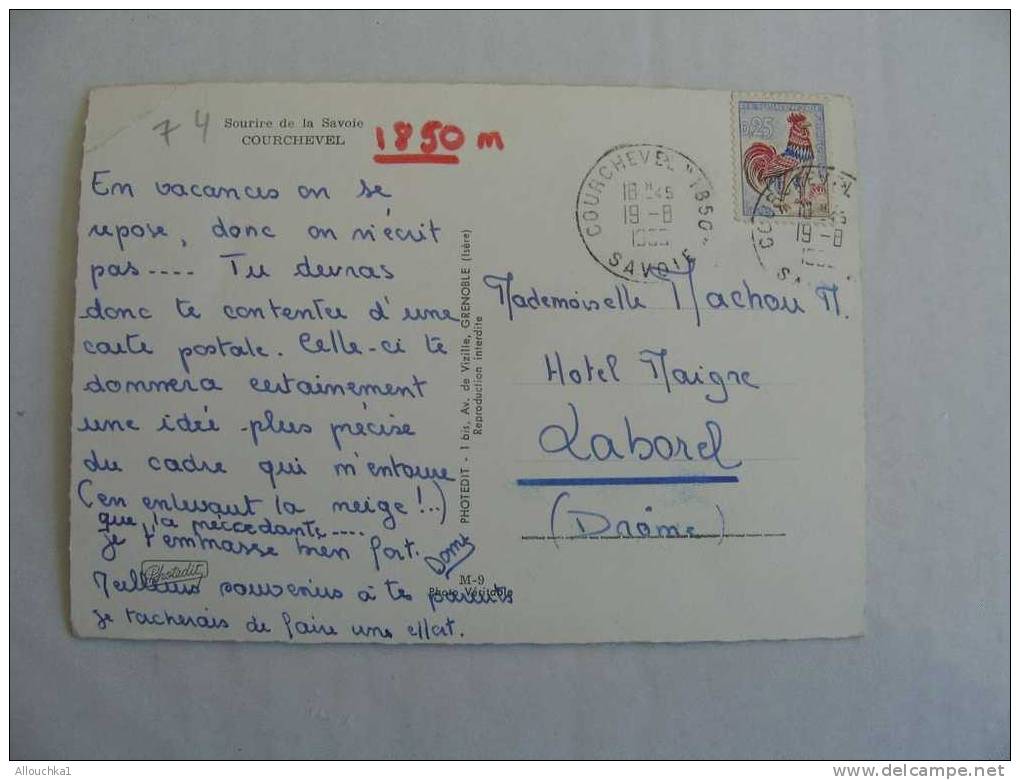 74
Sourire de la Savoie
COURCHEVEL
1850 m
En vacances on se
repose, donc on n'écrit
pas.... Tu devras
donc te contenter d'une
carte postale. Celle-ci te
donnera certainement
une idée plus précise
du cadre qui m'entoure
(en enlevant la neige !..)
que la précédante....
je t'embrasse bien fort. Domi
Photedit
Meilleurs souvenirs à tes parents
je tacherais de faire une effort.
PHOTEDIT - 1 bis, Av. de Vizille, GRENOBLE (Isère)
Reproduction interdite
M-9
Photo Véritable
0,25
COURCHEVEL "1850"
18 H 45
19 - 8
SAVOIE
19 - 8
Mademoiselle Machou M.
Hotel Maigre
Laborel
(Drôme)
Allouchka1
www.delcampe.net